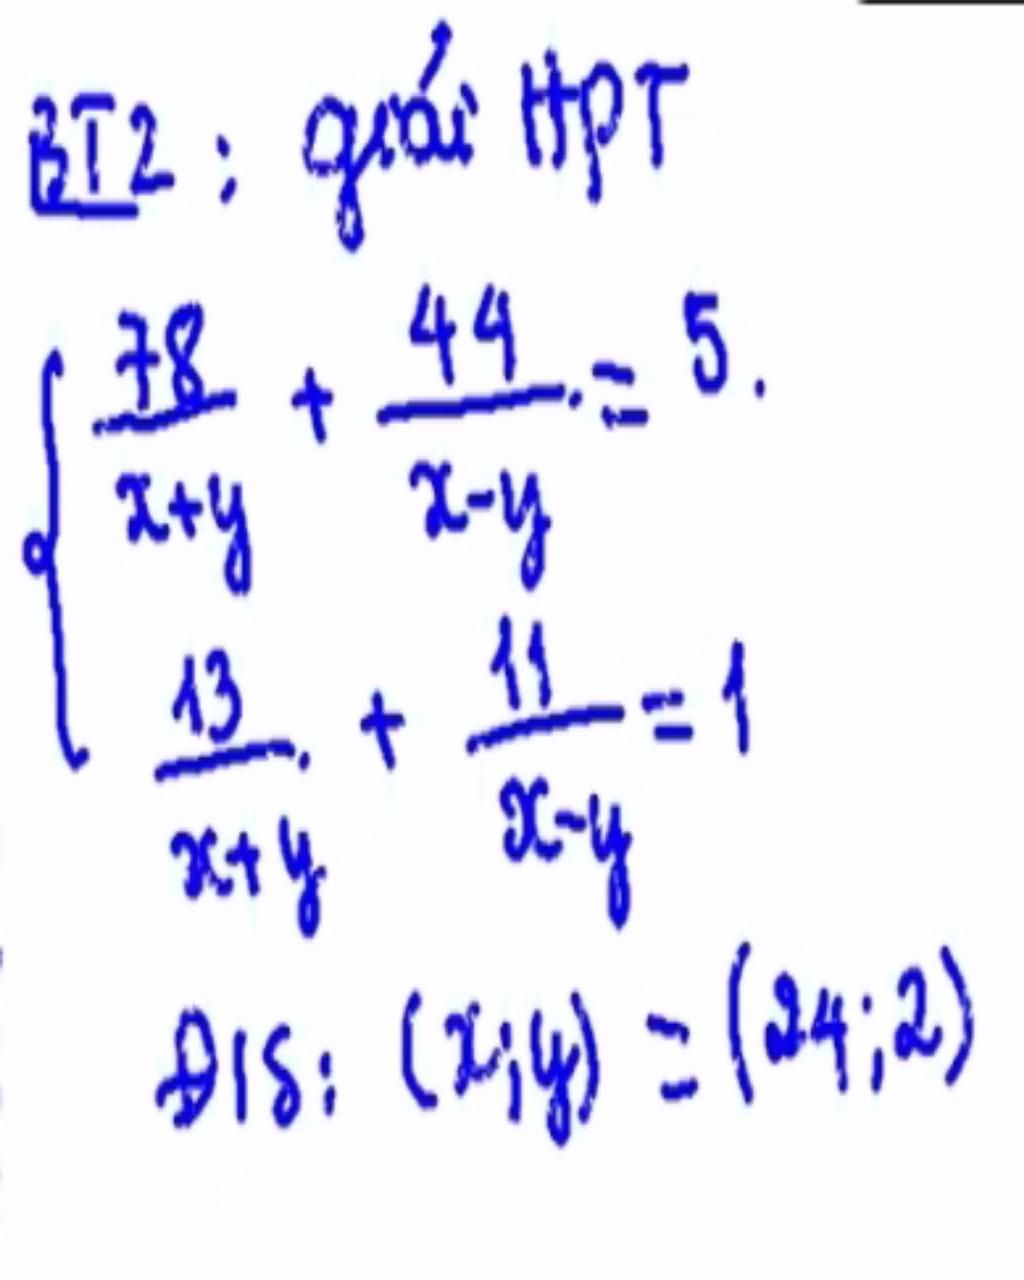 BT2: giải HPT
78/(x+y) + 44/(x-y) = 5.
13/(x+y) + 11/(x-y) = 1
Đ/S: (x;y) = (24;2)